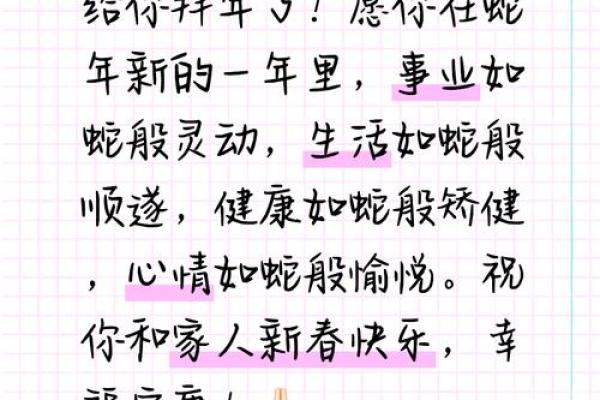 给你拜年了！愿你在蛇
年新的一年里，事业如
蛇般灵动，生活如蛇般
顺遂，健康如蛇般矫健
，心情如蛇般愉悦。祝
你和家人新春快乐，幸
福安康！